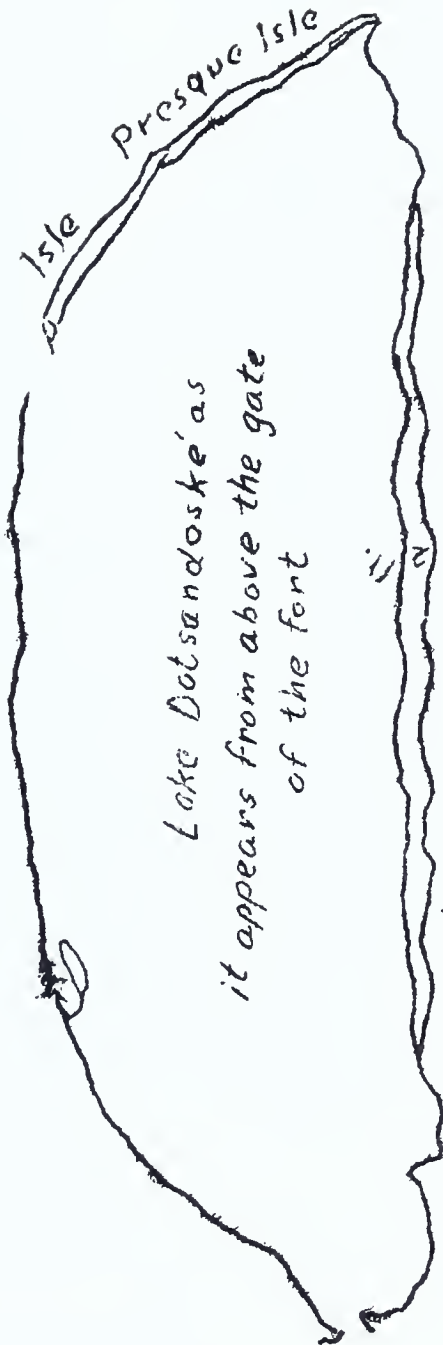 Isle
Presque Isle
Lake Dotsandoske' as
it appears from above the gate
of the fort